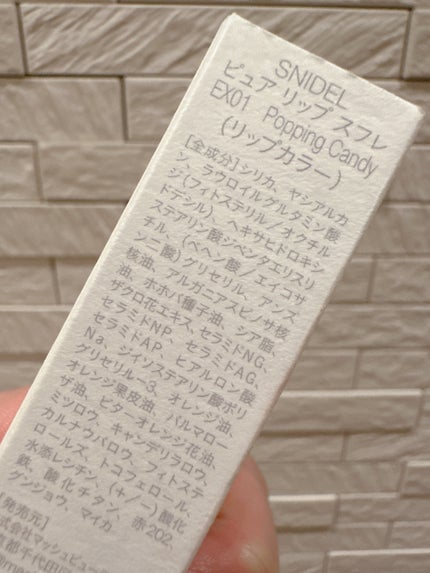 SNIDEL
ピュア リップ スフレ
EX01 Popping Candy
(リップカラー)
[全成分]シリカ、ヤシアルカ
ン、ラウロイルグルタミン酸
ジ(フィトステリル/オクチル
ドデシル)、ヘキサヒドロキシ
ステアリン酸ジペンタエリスリ
チル、(ベヘン酸/エイコサ
ン二酸)グリセリル、アンズ
核油、アルガニアスピノサ核
油、ホホバ種子油、シア脂、
ザクロ花エキス、セラミドNG、
セラミドNP、セラミドAG、
セラミドAP、ヒアルロン酸
Na、ジイソステアリン酸ポリ
グリセリル-3、オレンジ油、
オレンジ果皮油、パルマロー
ザ油、ビターオレンジ花油、
ミツロウ、キャンデリラロウ、
カルナウバロウ、フィトステ
ロールズ、トコフェロール、
水添レシチン、(+/-)酸化
鉄、酸化チタン、赤202、
グンジョウ、マイカ
[発売元]
式会社マッシュビュー
京都千代田